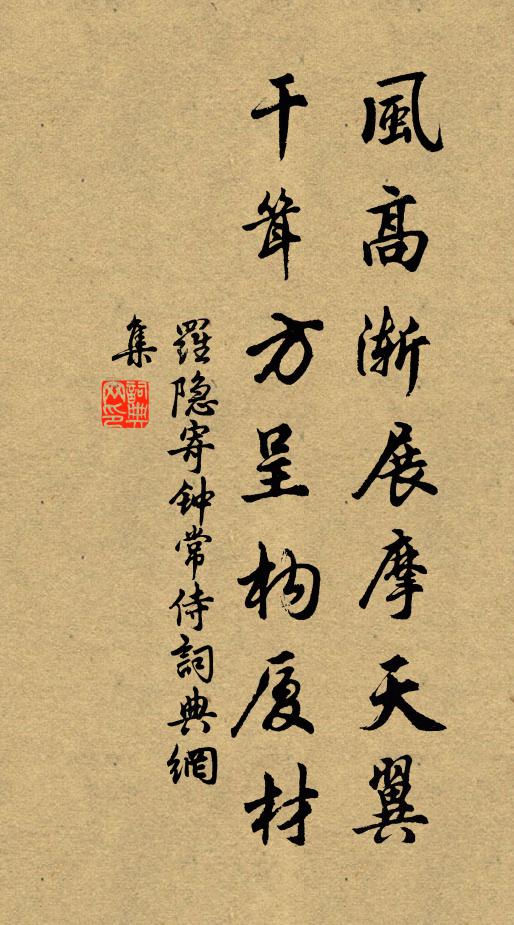 風高漸展摩天翼
干耸方呈构厦材
羅隐寄钟常侍詞典網
集
詞典网印